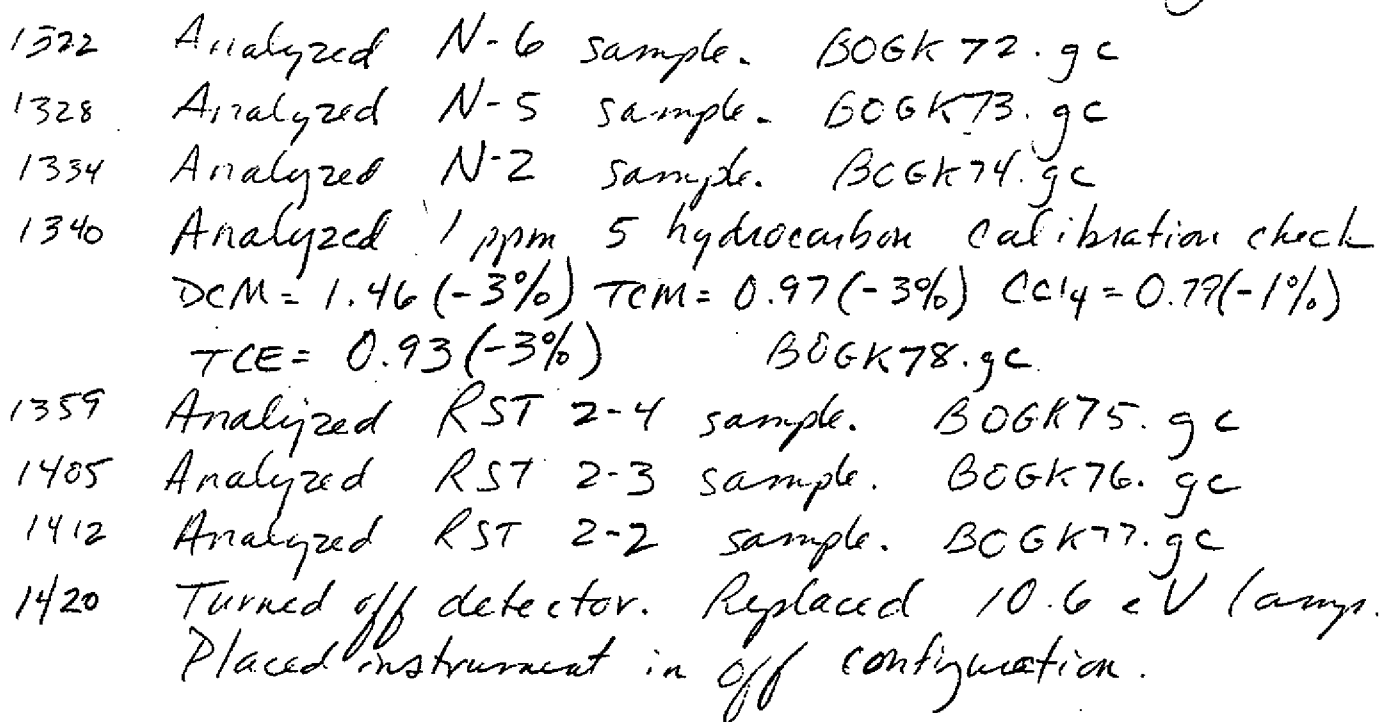 1322 Analyzed N-6 sample. BOGK72.gc
1328 Analyzed N-5 sample. BOGK73.gc
1334 Analyzed N-2 sample. BOGK74.gc
1340 Analyzed 1 ppm 5 hydrocarbon calibration check
DCM = 1.46 (-3%) TCM = 0.97 (-3%) CCl4 = 0.79 (-1%)
TCE = 0.93 (-3%) BOGK78.gc
1359 Analyzed RST 2-4 sample. BOGK75.gc
1405 Analyzed RST 2-3 sample. BOGK76.gc
1412 Analyzed RST 2-2 sample. BOGK77.gc
1420 Turned off detector. Replaced 10.6 eV lamp.
Placed instrument in off configuration.